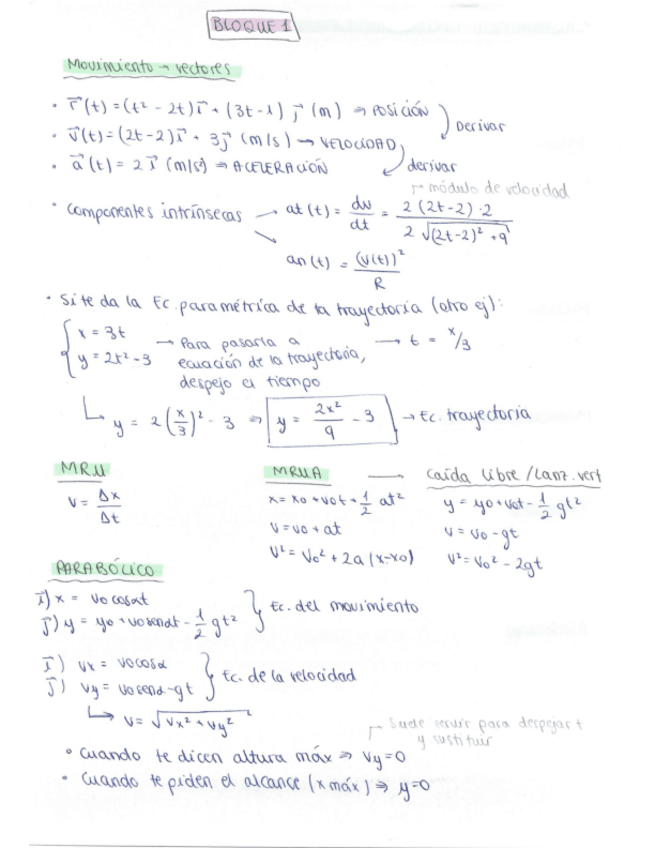 BLOQUE 1
Movimiento → vectores
• r⃗(t) = (t² - 2t)i⃗ + (3t-1) j⃗ (m) ⇒ POSICIÓN
• v⃗(t) = (2t-2)i⃗ + 3j⃗ (m/s) → VELOCIDAD
Derivar
• a⃗(t) = 2 i⃗ (m/s²) ⇒ ACELERACIÓN
derivar
módulo de velocidad
• componentes intrínsecas → at(t) = dv/dt = 2(2t-2)·2 / 2√((2t-2)² + 9)
an(t) = (v(t))²/R
• Si te da la Ec. paramétrica de la trayectoria (otro ej):
x = 3t
y = 2t² - 3
→ Para pasarla a ecuación de la trayectoria, despejo el tiempo → t = x/3
y = 2(x/3)² - 3 ⇒ y = 2x²/9 - 3 → Ec. trayectoria
MRU
v = Δx/Δt
MRUA
x = x0 + v0t + 1/2 at²
v = v0 + at
v² = v0² + 2a(x-x0)
Caída libre/Lanz. vert
y = y0 + v0t - 1/2 gt²
v = v0 - gt
v² = v0² - 2gt
PARABÓLICO
i⃗) x = v0 cosαt
j⃗) y = y0 + v0 senαt - 1/2 gt²
Ec. del movimiento
i⃗) vx = v0cosα
j⃗) vy = v0 senα - gt
Ec. de la velocidad
v = √(vx² + vy²)
Suele servir para despejar t y sustituir
• Cuando te dicen altura máx ⇒ vy = 0
• Cuando te piden el alcance (x máx) ⇒ y = 0